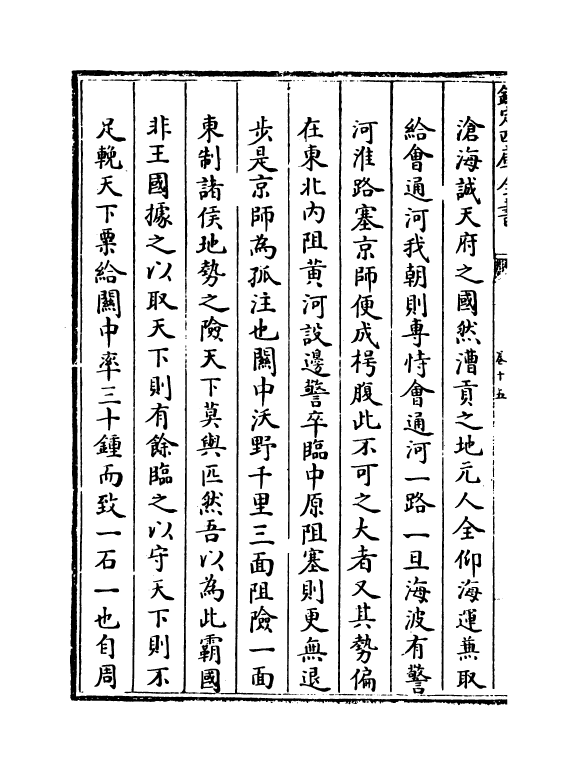 欽定四庫全書
卷十五
滄海誠天府之國然漕貢之地元人全仰海運兼取
給會通河我朝則專恃會通河一路一旦海波有警
河淮路塞京師便成枵腹此不可之大者又其勢偏
在東北内阻黄河設邊警卒臨中原阻塞則更無退
步是京師為孤注也關中沃野千里三面阻險一面
東制諸侯地勢之險天下莫與匹然吾以為此霸國
非王國據之以取天下則有餘臨之以守天下則不
足輓天下粟給關中率三十鍾而致一石一也自周